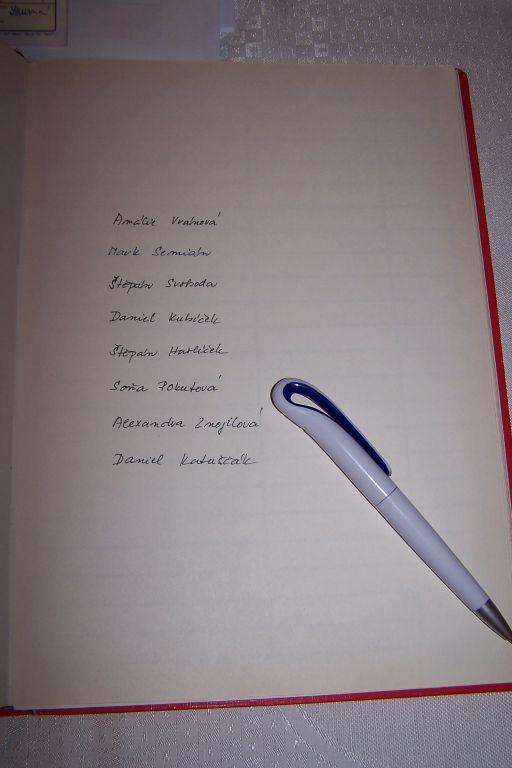 Amálie Vránová
Mark Semián
Štěpán Svoboda
Daniel Kubíček
Štěpán Havlíček
Soňa Pokutová
Alexandra Znojilová
Daniel Katuščák